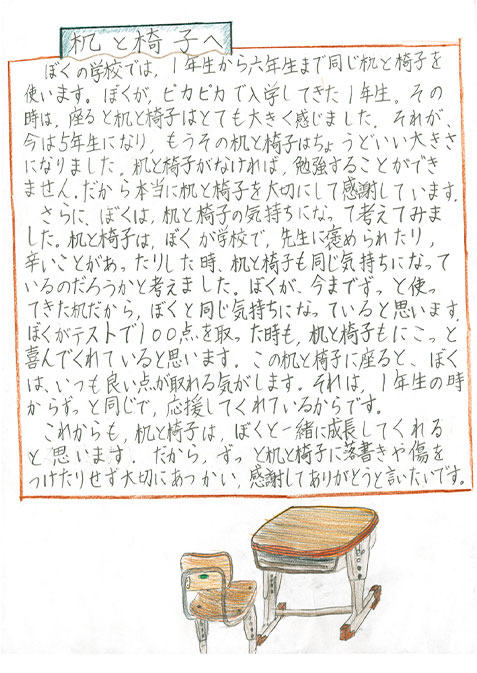 机と椅子へ
ぼくの学校では、1年生から六年生まで同じ机と椅子を
使います。ぼくが、ピカピカで入学してきた1年生。その
時は、座ると机と椅子はとても大きく感じました。それが、
今は5年生になり、もうその机と椅子はちょうどいい大きさ
になりました。机と椅子がなければ、勉強することができ
ません。だから本当に机と椅子を大切にして感謝しています。
さらに、ぼくは、机と椅子の気持ちになって考えてみま
した。机と椅子は、ぼくが学校で、先生に褒められたり、
辛いことがあったりした時、机と椅子も同じ気持ちになって
いるのだろうかと考えました。ぼくが、今までずっと使っ
てきた机だから、ぼくと同じ気持ちになっていると思います。
ぼくがテストで100点を取った時も、机と椅子もにこっと
喜んでくれていると思います。この机と椅子に座ると、ぼく
は、いつも良い点が取れる気がします。それは、1年生の時
からずっと同じで、応援してくれているからです。
これからも、机と椅子は、ぼくと一緒に成長してくれる
と思います。だから、ずっと机と椅子に落書きや傷を
つけたりせず大切にあつかい、感謝してありがとうと言いたいです。